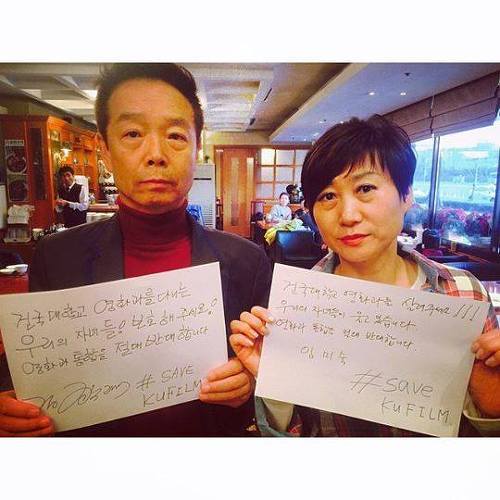 건국대학교 영화과를 다니는
우리의 자녀들을 보호해주십시오
영화과 통합을 절대 반대합니다
# SAVE
KUFILM
건국대학교 영화과를 살려주세요!!!
우리의 자녀들이 웃고 싶습니다.
영화과 통합을 절대 반대합니다.
임미숙
#save
KUFILM